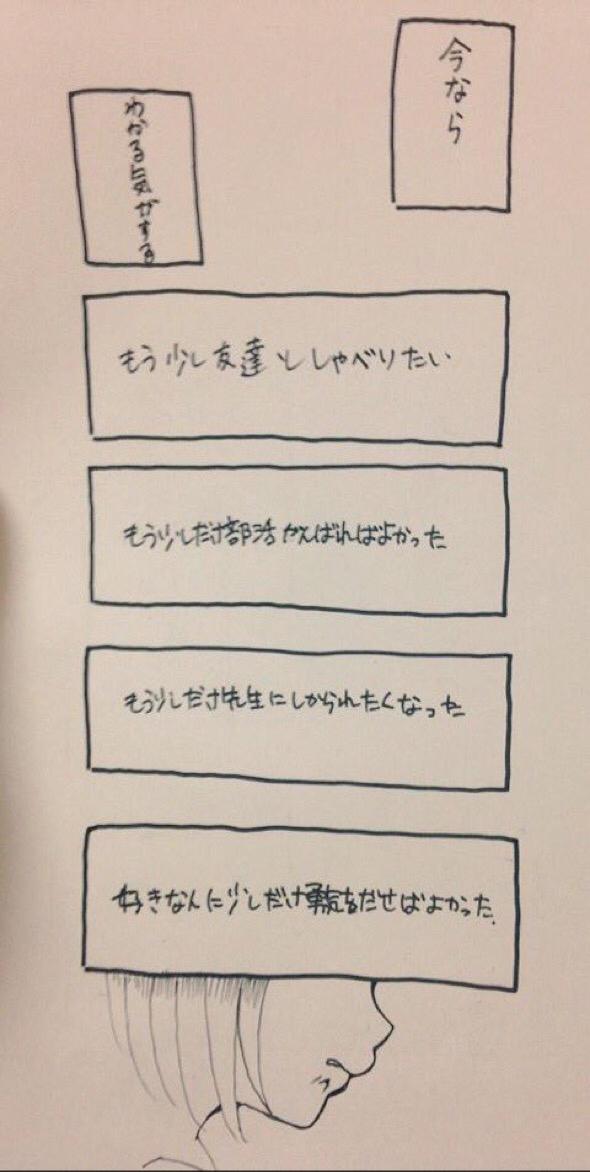 今なら
わかる気がする
もう少し友達としゃべりたい
もう少しだけ部活がんばればよかった
もう少しだけ先生にしかられたくなった
好きなんに少しだけ勇気をだせばよかった.